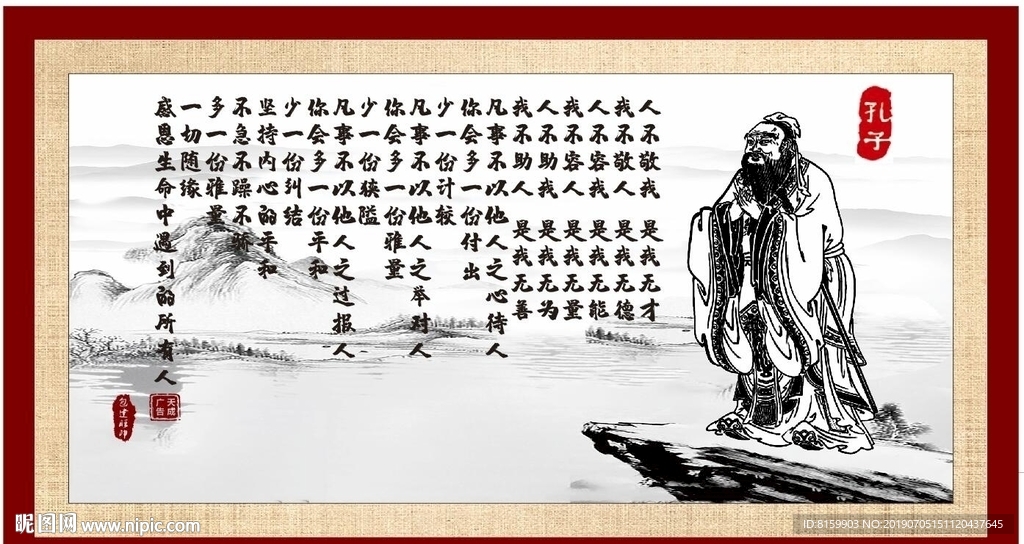 孔子
人不敬我 是我无才
我不敬人 是我无德
人不容我 是我无能
我不容人 是我无量
人不助我 是我无为
我不助人 是我无善
凡事不以他人之心待人
你会多一份付出
少一份计较
凡事不以他人之举对人
你会多一份雅量
少一份狭隘
凡事不以他人之过报人
你会多一份平和
少一份纠结
坚持内心的平和
不急不躁不骄
多一份雅量
一切随缘
感恩生命中遇到的所有人
天成
广告
昵图网 www.nipic.com
ID:8159903 NO:20190705151120437645